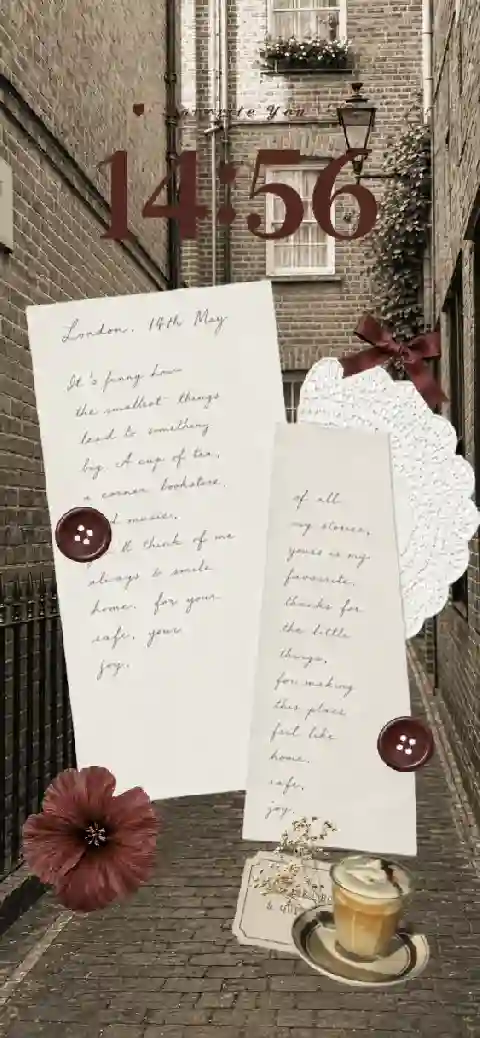 You
14:56
London. 14th May
It's funny how
the smallest things
lead to something
big. A cup of tea,
a corner bookstore,
music.
I think of me
always & smile
home. for your
safe. your
joy.
of all
my stories,
yours is my
favourite.
thanks for
the little
things,
for making
this place
feel like
home.
safe.
joy.
&